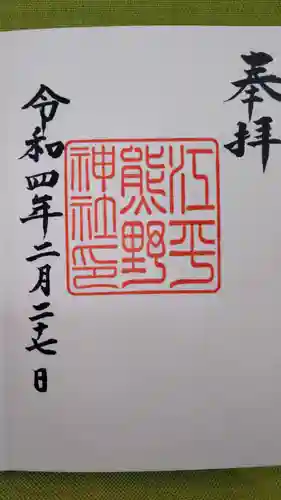 奉拝
江平
熊野
神社印
令和四年二月二十七日